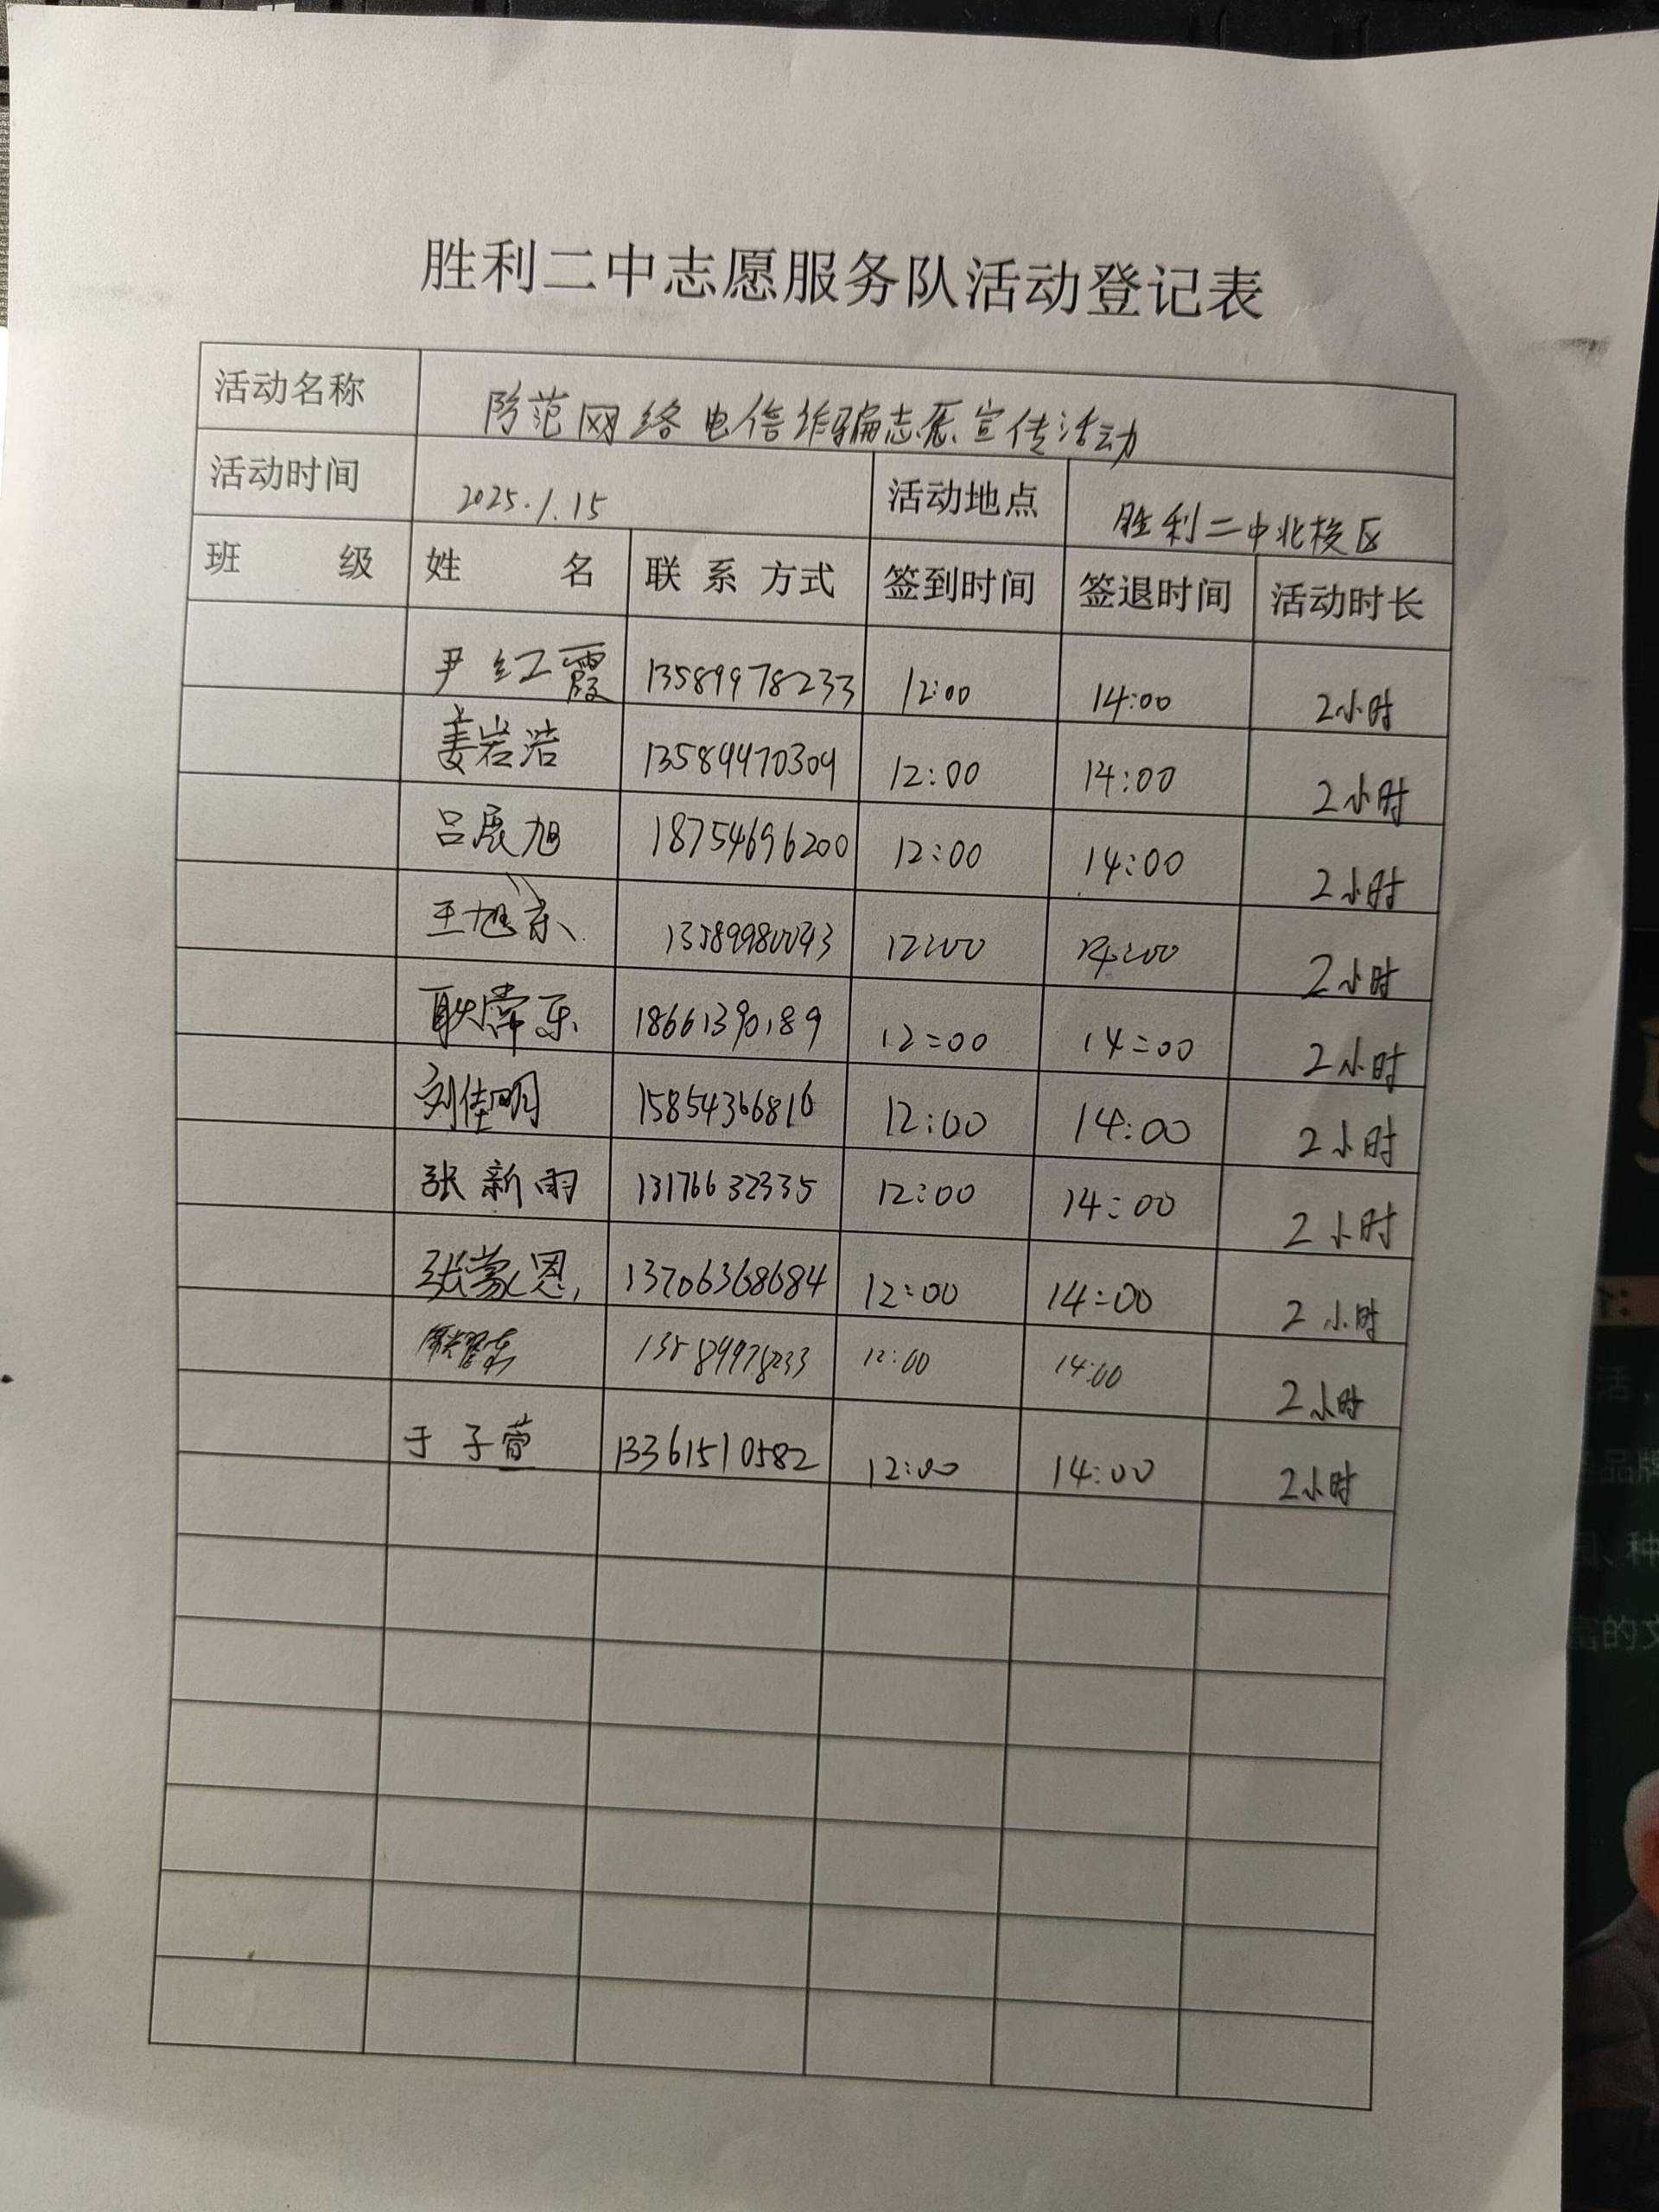 胜利二中志愿服务队活动登记表
活动名称 防范网络电信诈骗志愿宣传活动
活动时间 2025.1.15 活动地点 胜利二中北校区
班 级 姓 名 联系方式 签到时间 签退时间 活动时长
尹红霞 13589978233 12:00 14:00 2小时
姜岩浩 13589970309 12:00 14:00 2小时
吕展旭 18754696200 12:00 14:00 2小时
王旭东 12:00 14:00 2小时
18661390189 12:00 14:00 2小时
刘佳明 15854366816 12:00 14:00 2小时
张新雨 13176632335 12:00 14:00 2小时
张蒙恩 13706368684 12:00 14:00 2小时
13589978233 12:00 14:00 2小时
于子萱 13361510582 12:00 14:00 2小时
品牌
、种
富的文